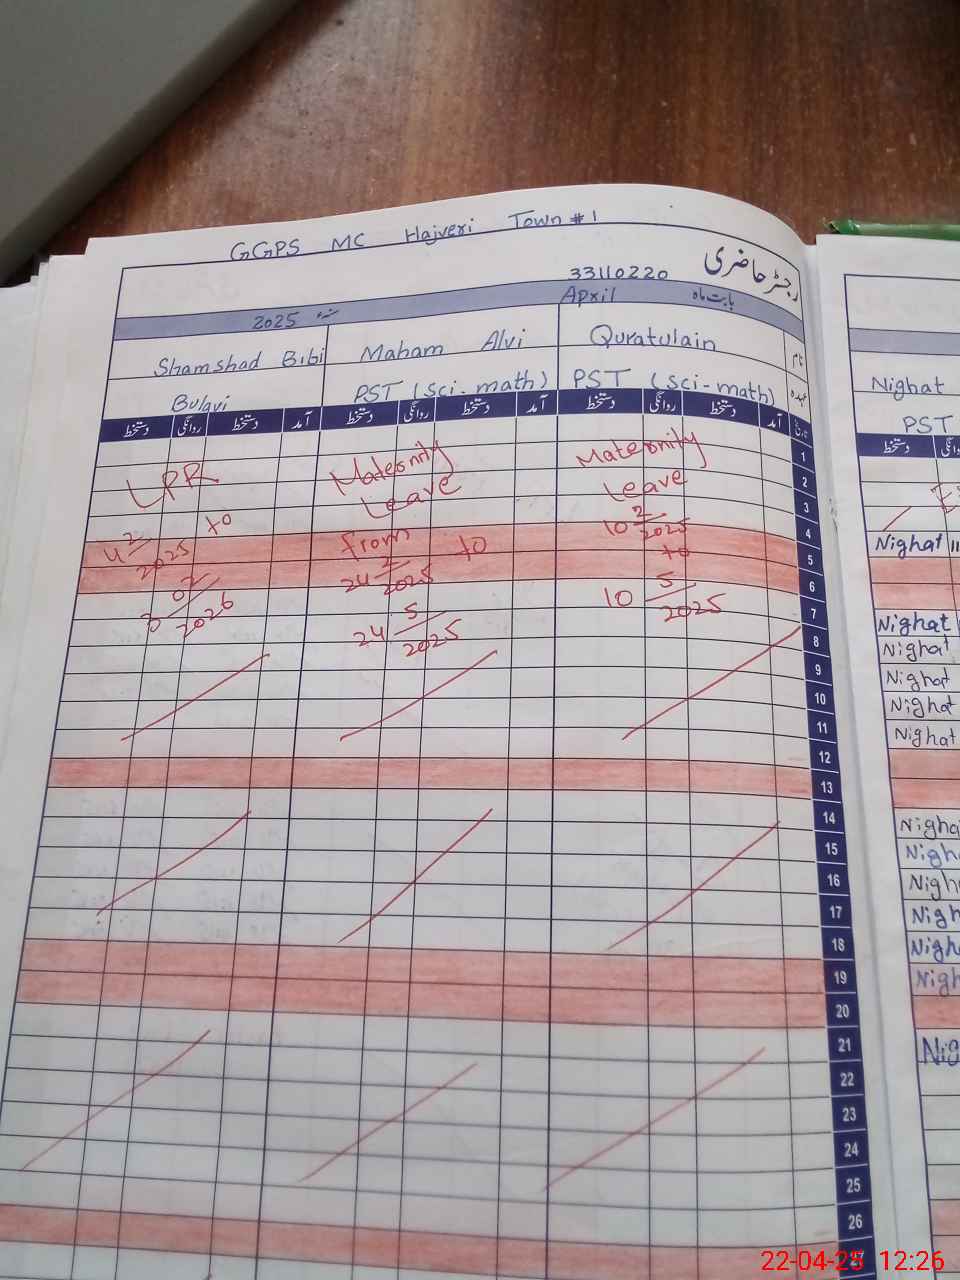 GGPS MC Hajveri Town #1
رجسٹر حاضری
33110220
بابت ماہ April سنہء 2025
نام Quratulain Maham Alvi Shamshad Bibi
عہدہ PST (Sci-math) PST (Sci-math)
تاریخ آمد دستخط روانگی دستخط آمد دستخط روانگی دستخط آمد دستخط روانگی دستخط
Maternity
Leave
10 2/2025
to
10 5/2025
Maternity
Leave
from
24 2/2025 to
24 5/2025
LPR
4 2/2025 to
2026
1
2
3
4
5
6
7
8
9
10
11
12
13
14
15
16
17
18
19
20
21
22
23
24
25
26
27
Nighat
PST
دستخط
Nighat
Nighat
Nighat
Nighat
Nighat
Nighat
22-04-25 12:26